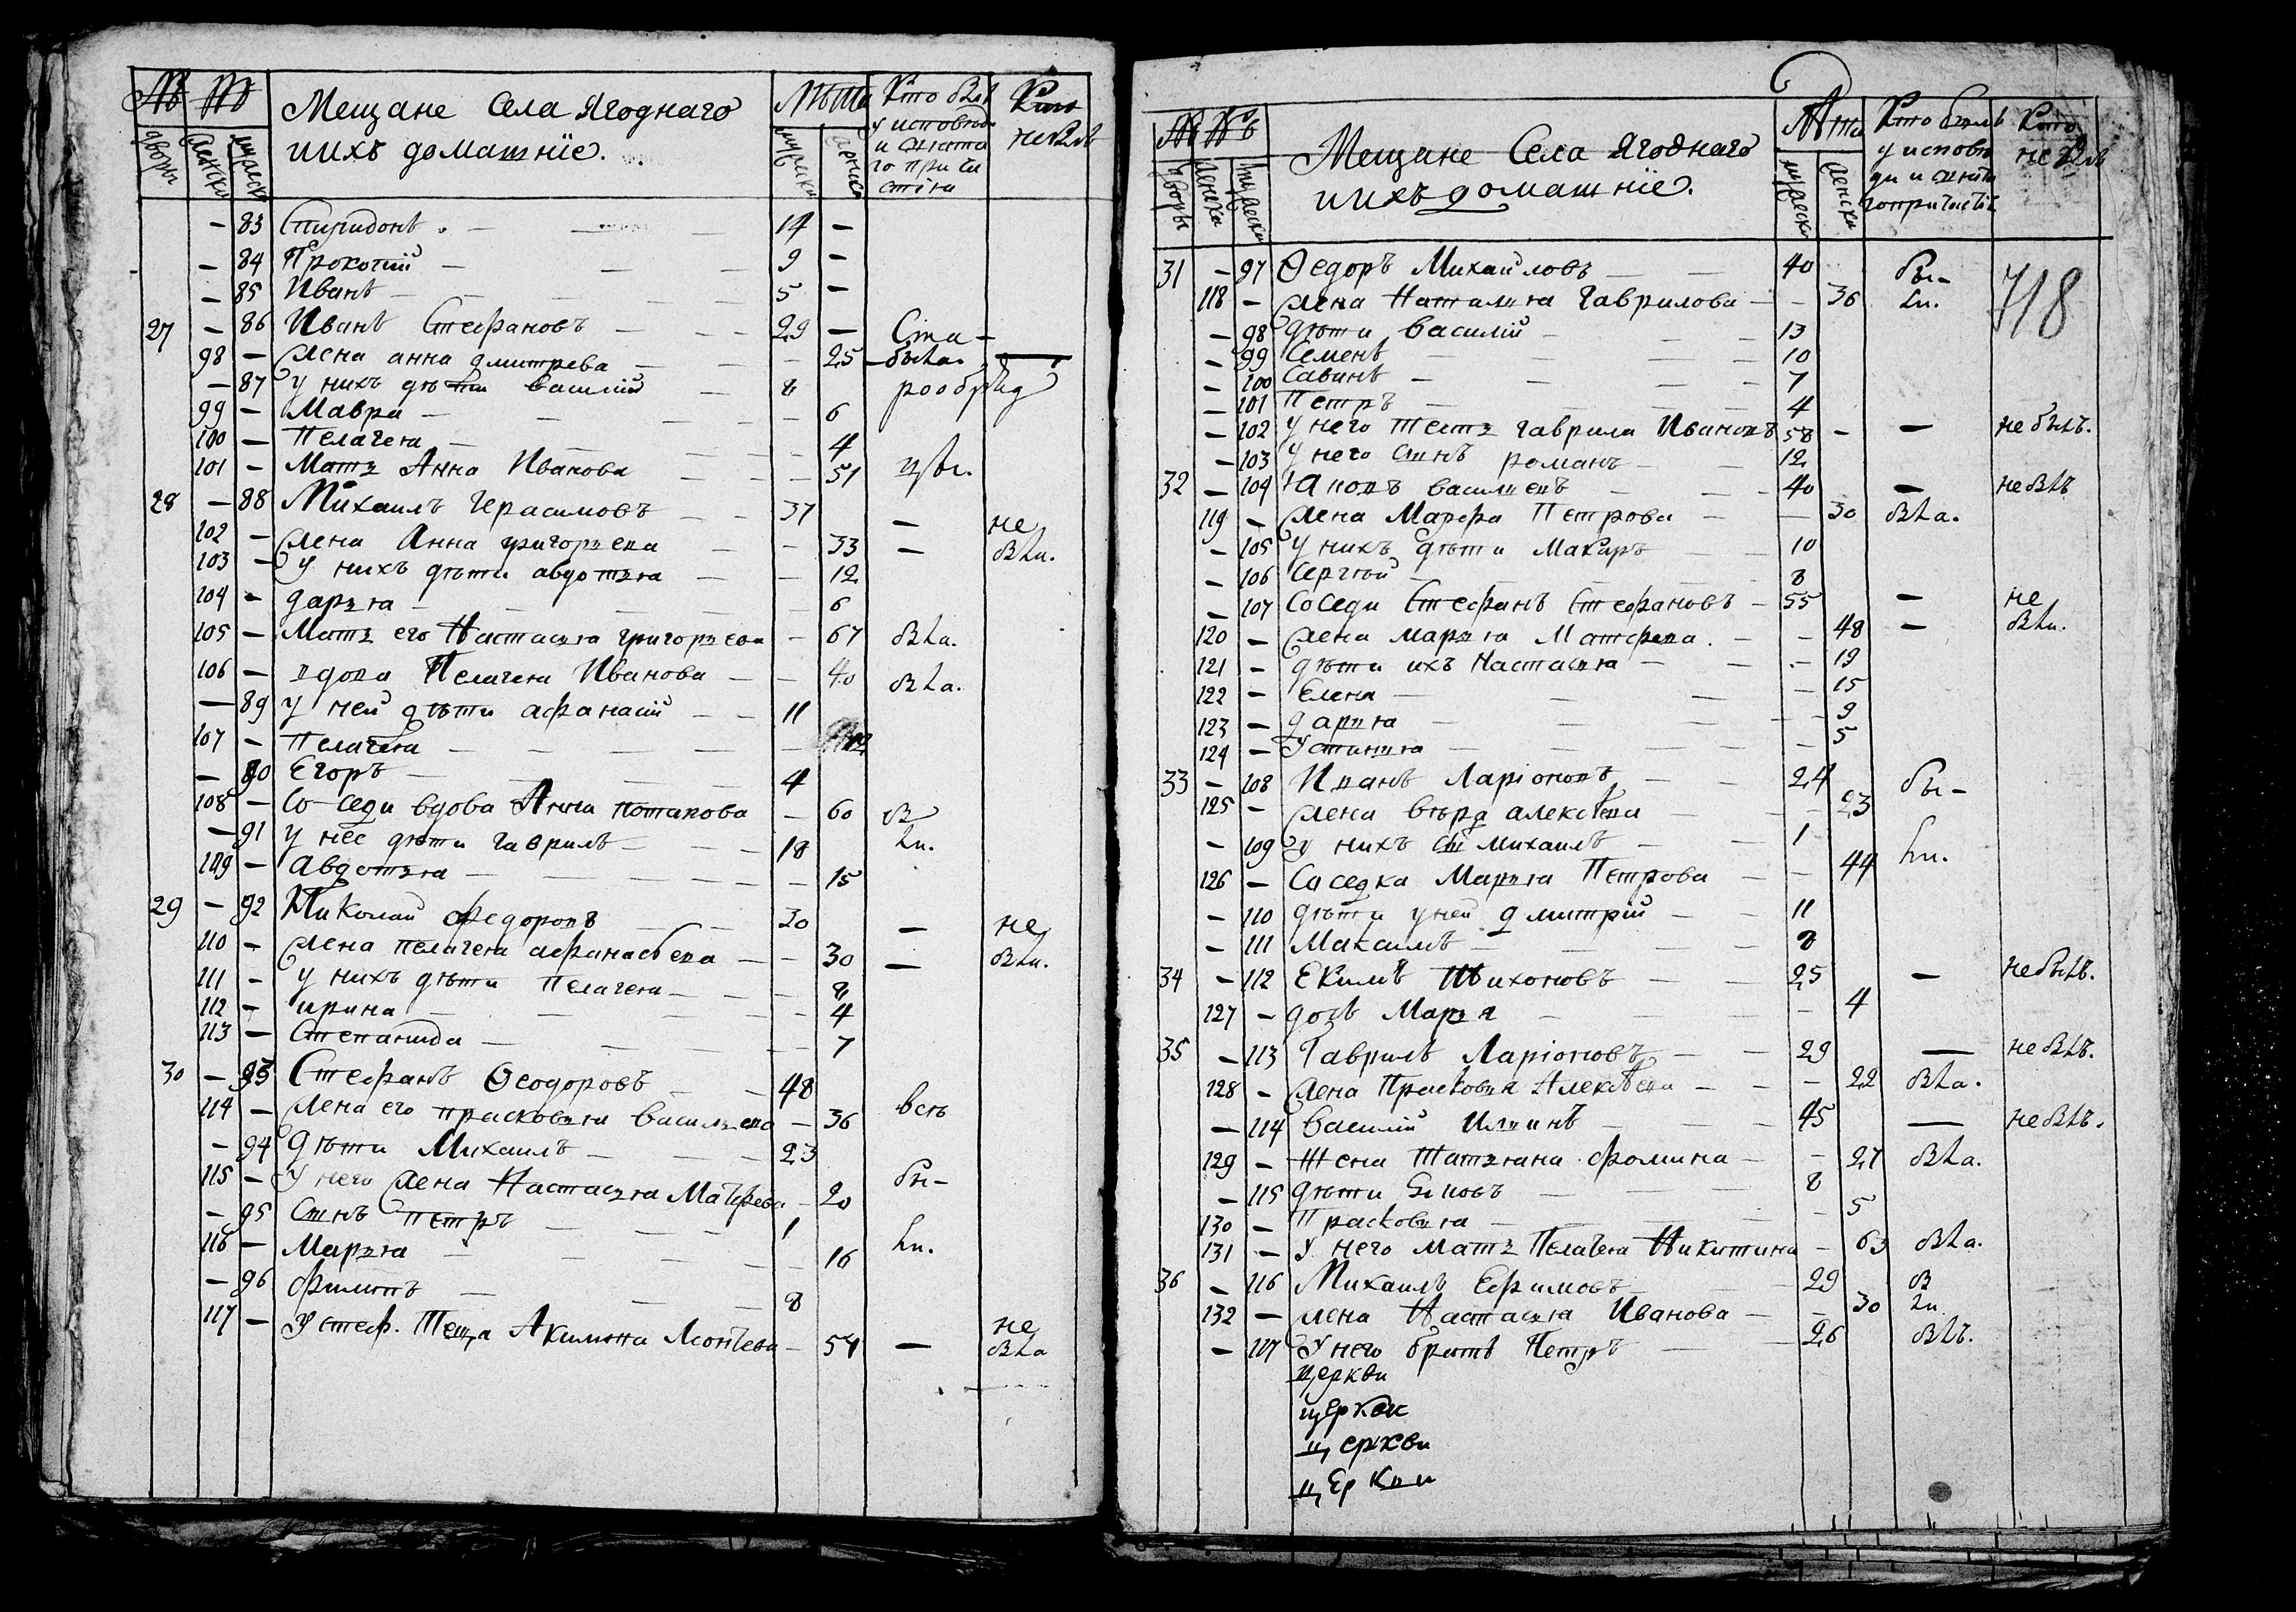 № №
Мещане Села Ягоднаго
иихъ домашнїе.
Лѣта
Кто был
у исповѣди
и святаго
причастія
Кто
не был
дворы
женска
мужеска
мужеска
женска
– 83 Спиридонъ – 14 –
– 84 Прокопий – 9 –
– 85 Иванъ – 5 –
27 – 86 Иванъ Стефановъ – 29 –
98 – жена анна дмитрева – 25 – была.
– 87 у нихъ дѣти василий – 8
99 – Мавра – 6
100 – Пелагея – 4
101 – Мать Анна Иванова – 51
28 – 88 Михаилъ Герасимовъ – 37 – не
102 – жена Анна григорьева – 33 – были.
103 – У нихъ дѣти авдотья – 12
104 – дарья – 6
105 – Мать его Настасья григорьева – 67 была.
106 – вдова Пелагея Иванова – 40 была.
– 89 у ней дѣти афанасий – 11
107 – Пелагея –
– 90 Егоръ – 4
108 – Со седи вдова Анна потапова – 60 бы
– 91 у нее дѣти гаврилъ – 18 ли.
109 – Авдотья – 15
29 – 92 Николай федоровъ 30 – не
110 – жена пелагея афанасьева – 30 – были.
111 – у нихъ дѣти пелагея – 8
112 – ирина – 4
113 – Степанида – 7
30 – 93 Стефанъ Ѳеодоровъ – 48
114 – жена его прасковья васильева – 36 всѣ
– 94 Дѣти Михаилъ – 23
115 – У него жена Настасья Матфева – 20 бы–
– 95 Сынъ петръ – 1
116 – Марья – 16 ли.
– 96 филипъ – 8
117 – У стеф. Теща Акилина Леонтьева – 54 – не была
№ №
Мещане Села Ягоднаго
иихъ домашнїе.
Лѣта
Кто былъ
у исповѣ
ди и святa
гопричастія
Кто
не был
дворы
женска
мужеска
мужеска
женска
31 – 97 Ѳедоръ Михайловъ – 40 бы–
118 – жена Наталья Гаврилова – 36 ли.
718
– 98 дѣти василий – 13
– 99 Семенъ – 10
– 100 Савинъ – 7
– 101 Петръ – 4
– 102 У него тесть гаврила Ивановъ 58 – – не былъ.
– 103 У него сынъ романъ – 12
32 – 104 Яковъ васильевъ – 40 – не былъ
119 – жена Марфа Петрова – 30 была.
– 105 У нихъ дѣти Макаръ 10
– 106 Сергѣй – 8
– 107 Соседи Стефанъ Стефановъ – 55 – не
120 – жена марья Матфева. – 48 – были.
121 – дѣти ихъ Настасья – 19
122 – Елена – 15
123 – дарья – 9
124 – Устинья – 5
33 – 108 Иванъ Ларіоновъ – 24 бы–
125 – жена вѣра алексѣева – 23
– 109 у нихъ сы Михаилъ – 1
126 – Соседка Марья Петрова – 44 ли.
– 110 дѣти уней дмитрій – 11
– 111 Максимъ – 8
34 – 112 Екимъ Тихоновъ – 25 – небылъ.
127 – дочь Марья – 4
35 – 113 Гаврилъ Ларіоновъ – 29 – не былъ.
128 – жена Прасковья Алексѣева – 22 была.
– 114 Василий Ильинъ – 45 – не былъ.
129 – Жена Татьяна фомина – 27 была.
– 115 дѣти – 8
130 – Прасковья – 5
131 – У него мать Пелагея Никитина – 63 была.
36 – 116 Михаилъ Ефимовъ 29 бы
132 – жена Настасья Иванова – 30 ли.
– 117 У него братъ Петръ – 26 былъ.
церкви
церкви
церкви
церкви